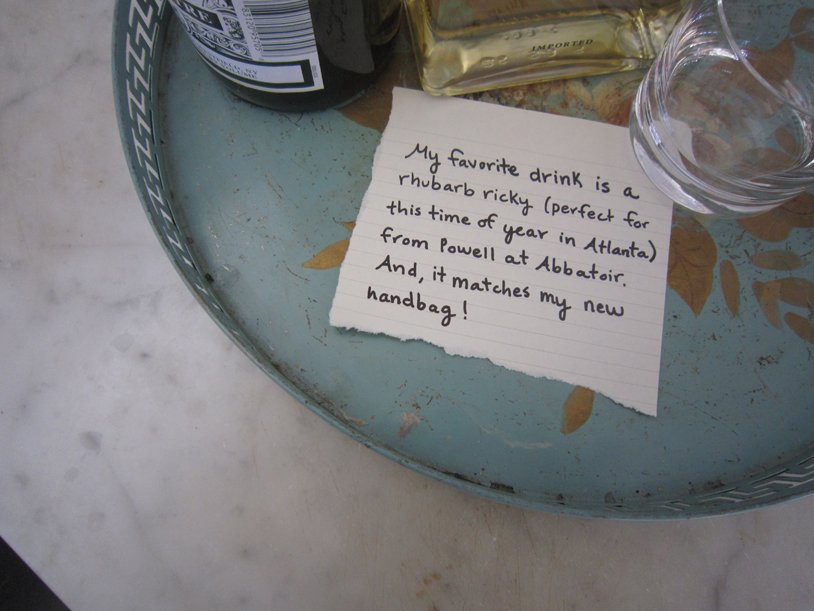 IMPORTED
My favorite drink is a
rhubarb ricky (perfect for
this time of year in Atlanta)
from Powell at Abbatoir.
And, it matches my new
handbag!